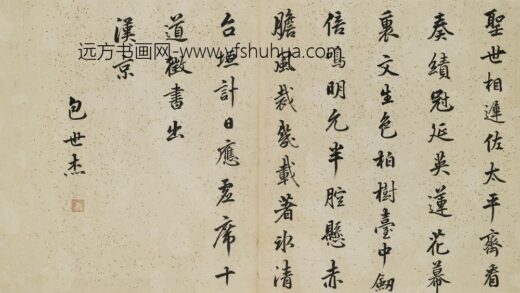 聖世相逢佐太平齊看
奏績冠延英蓮花幕
裏文生色柏樹臺中劒
信鳴明允半腔懸赤
膽風裁幾載著氷清
台垣計日應虛席十
道徵書出
漢京
包世杰
远方书画网-www.yfshuhua.com